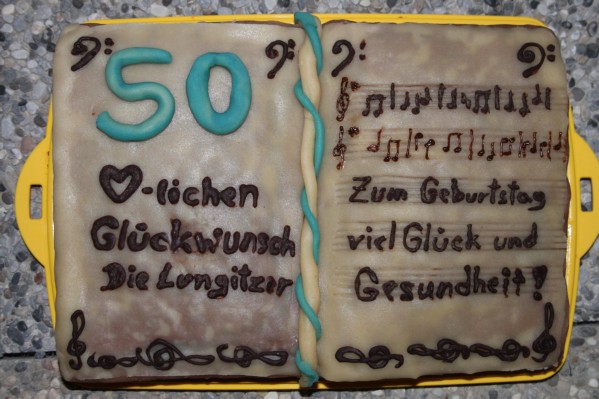 50
♥-lichen
Glückwunsch
Die Lungitzer
Zum Geburtstag
viel Glück und
Gesundheit!